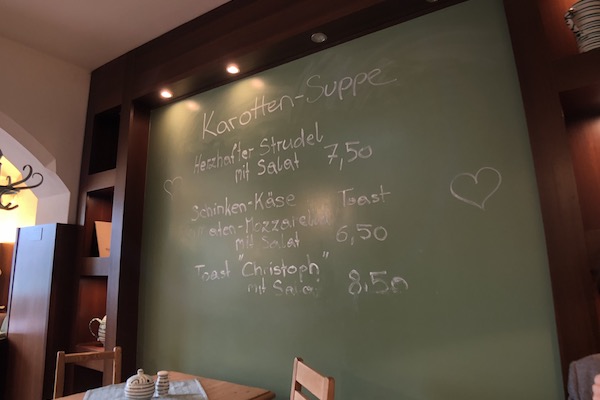 Karotten-Suppe
Herzhafter Strudel
mit Salat 7,50
Schinken-Käse Toast
mit Salat 6,50
Toast "Christoph"
mit Salat 8,50